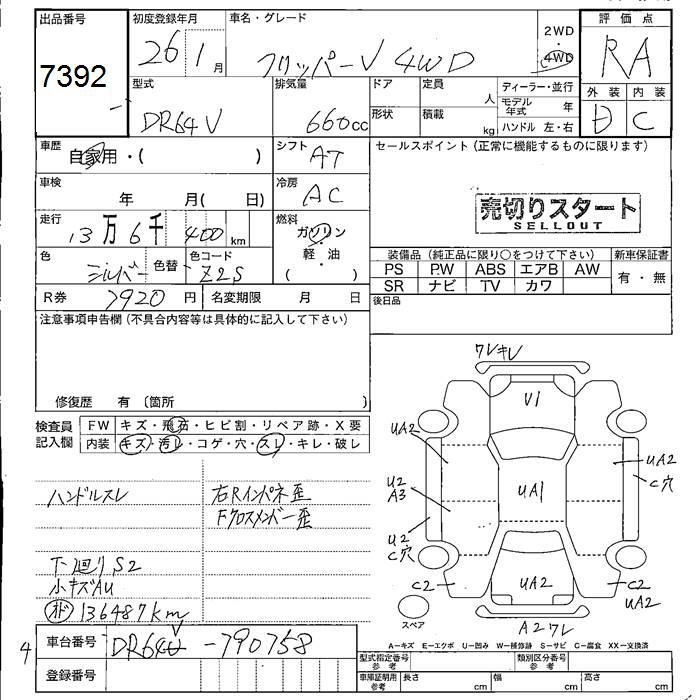 出品番号 初度登録年月 車名・グレード 評価点
7392 26 1月 クリッパーV 4WD 2WD・4WD RA
型式 排気量 ドア 定員 ディーラー・並行 外装 内装
DR64V 660cc 形状 積載 人 kg モデル年式 年 D C
ハンドル 左・右
車歴 自家用・( ) シフト AT セールスポイント(正常に機能するものに限ります)
車検 年 月( 日) 冷房 AC
売切りスタート
SELLOUT
走行 13万6千400km 燃料 ガソリン・軽・油( )
色 シルバー 色替 色コード Z2S
装備品(純正品に限り○をつけて下さい) 新車保証書
PS P.W ABS エアB AW 有・無
SR ナビ TV カワ
R券 7920円 名変期限 月 日 後日品
注意事項申告欄(不具合内容等は具体的に記入して下さい)
修復歴 有(箇所 )
検査員記入欄 FW キズ・飛石・ヒビ割・リペア跡・X要
内装 キズ・汚レ・コゲ・穴・スレ・キレ・破レ
ハンドルスレ 右Rインパネ歪
Fクロスメンバー歪
下廻りS2
小キズAU
オド 136487km
ワレキレ
V1
UA2
UA2
C穴
U2
A3
UA1
U2
C穴
C2
UA2
C2
UA2
スペア
A2ワレ
A=キズ E=エクボ U=凹み W=補修跡 S=サビ C=腐食 XX=交換済
4 車台番号 DR64V-790758
登録番号
型式指定番号 参考 類別区分番号 参考
車庫証明用 参考 長さ cm 幅 cm 高さ cm